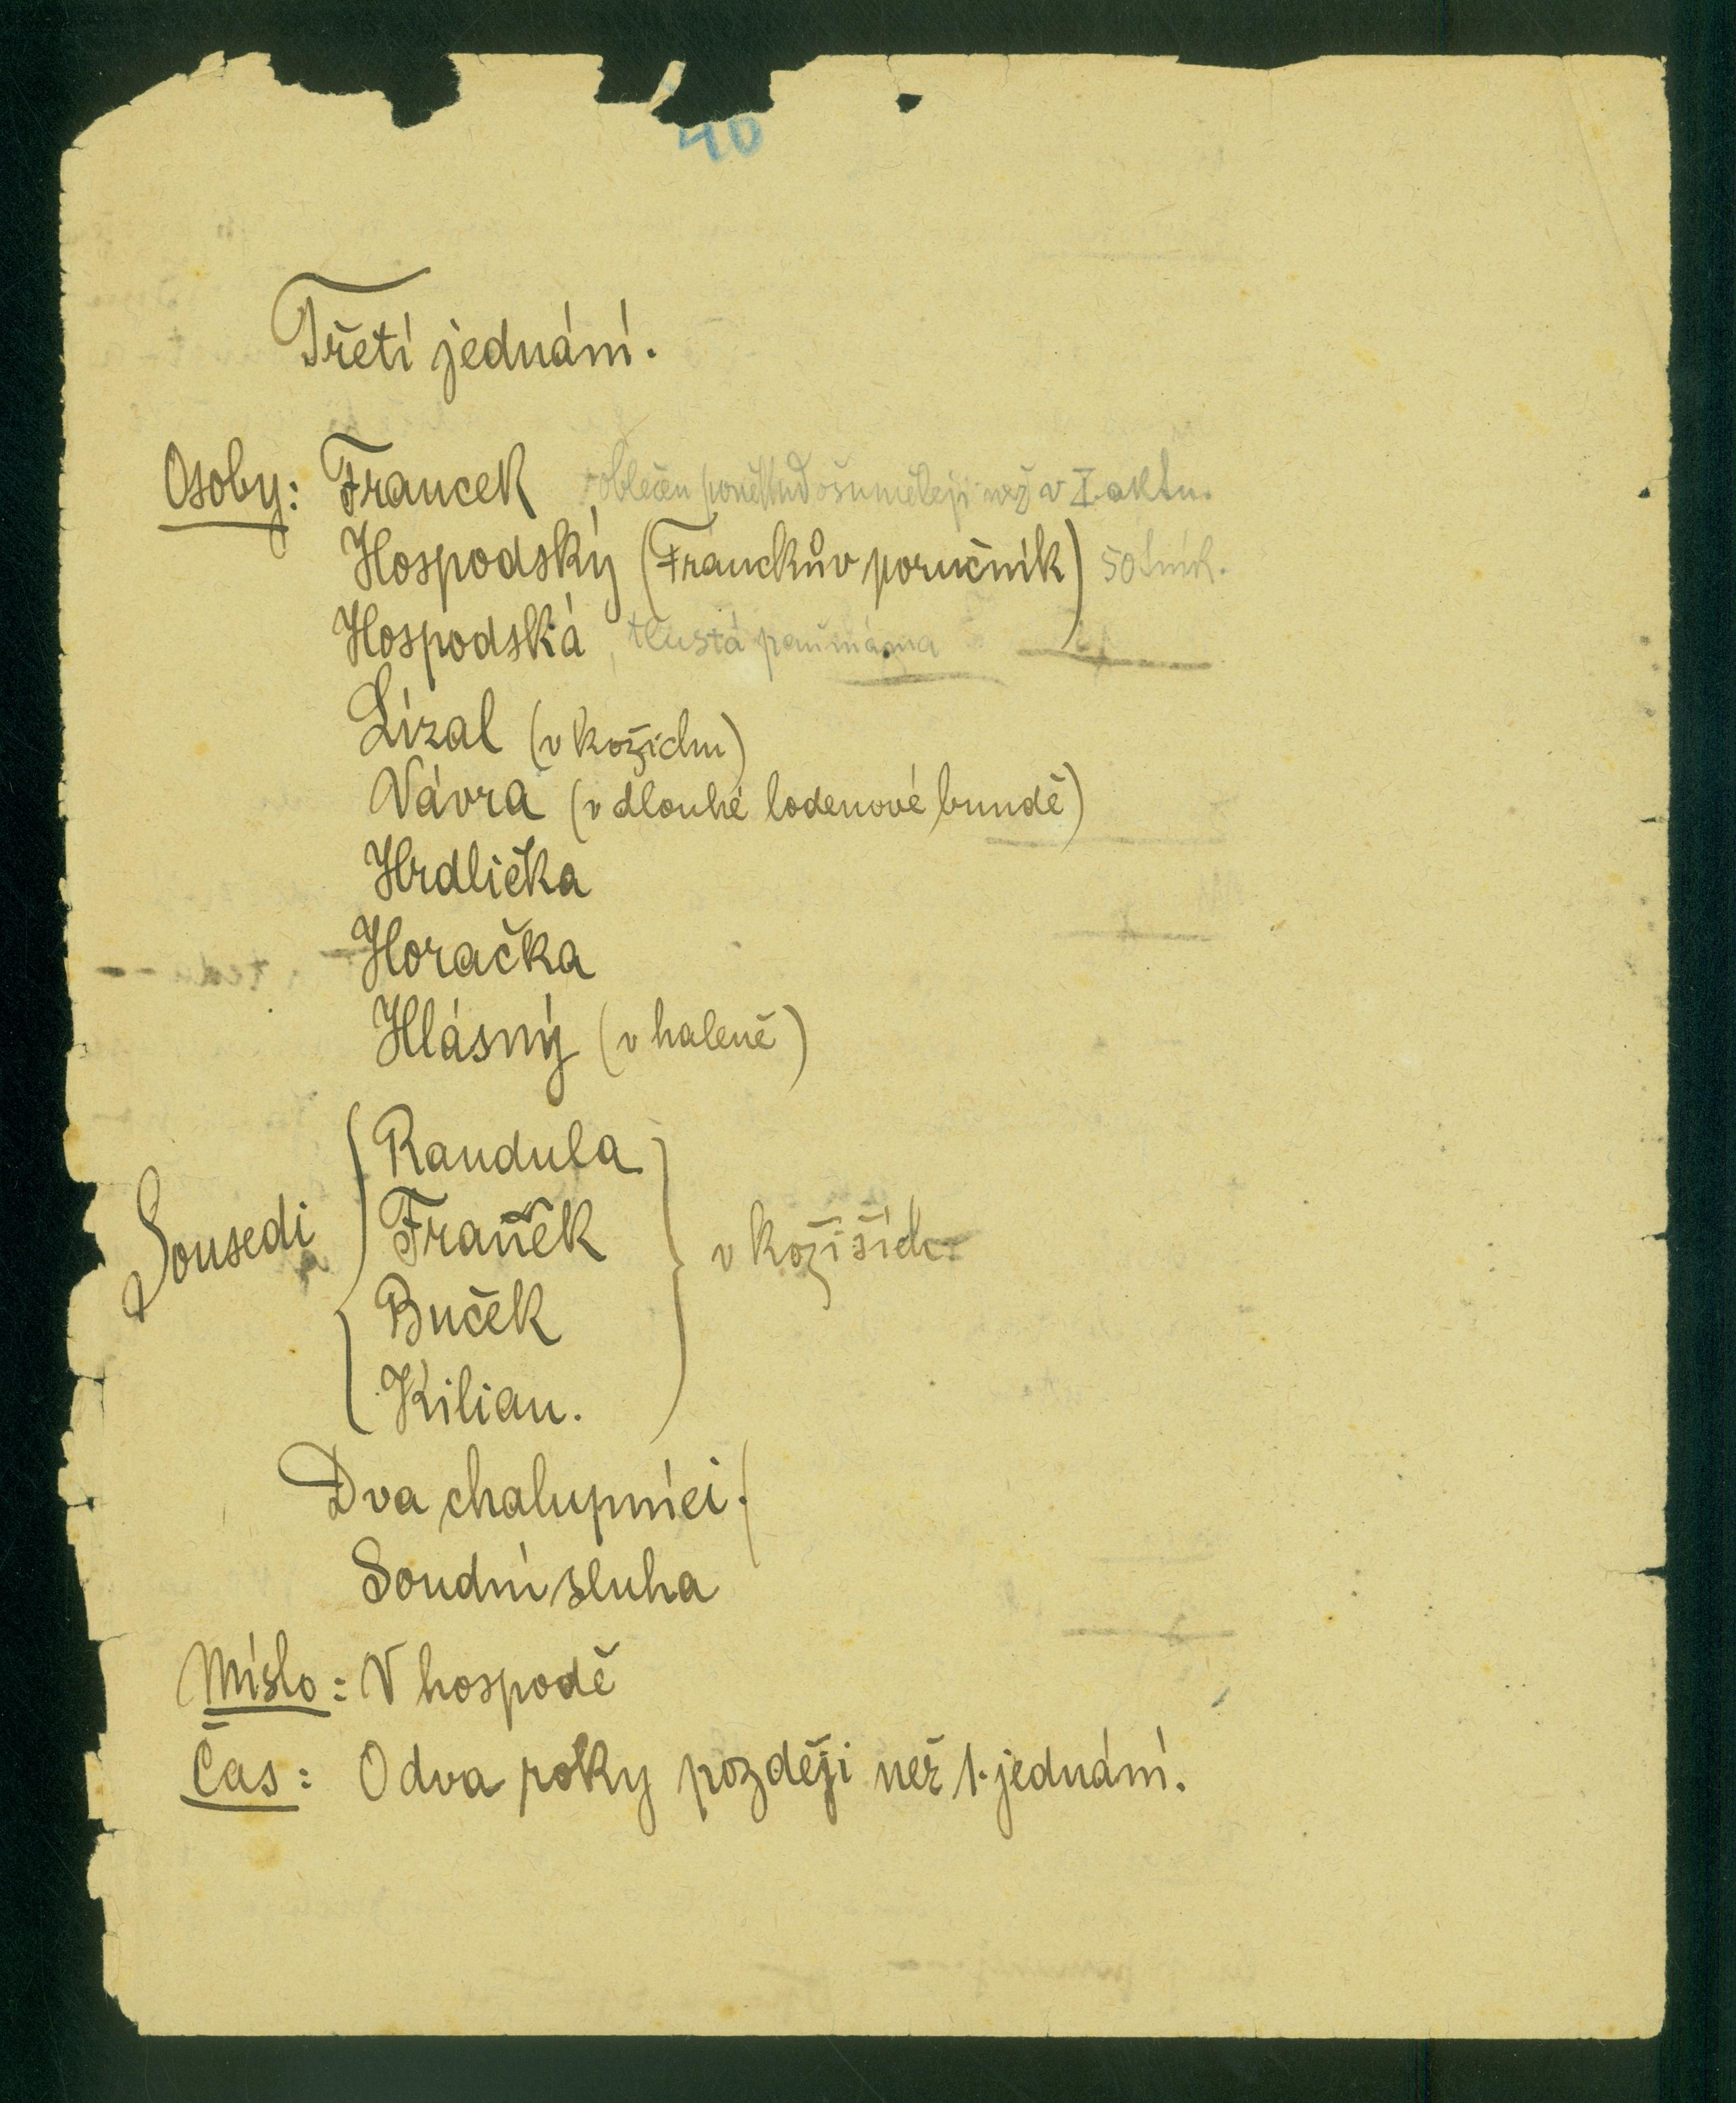 40
Třetí jednání.
Osoby: Francek oblečen poněkud ošuměleji než v I. aktu.
Hospodský (Franckův poručník) 50tník.
Hospodská, tlustá panímáma
Lízal (v kožichu)
Vávra (v dlouhé lodenové bundě)
Hrdlička
Horačka
Hlásný (v haleně)
Sousedi { Raudula
Franěk
Buček
Kilian. } v kožiších
Dva chalupníci.
Soudní sluha
Místo: V hospodě
Čas: O dva roky později než 1. jednání.